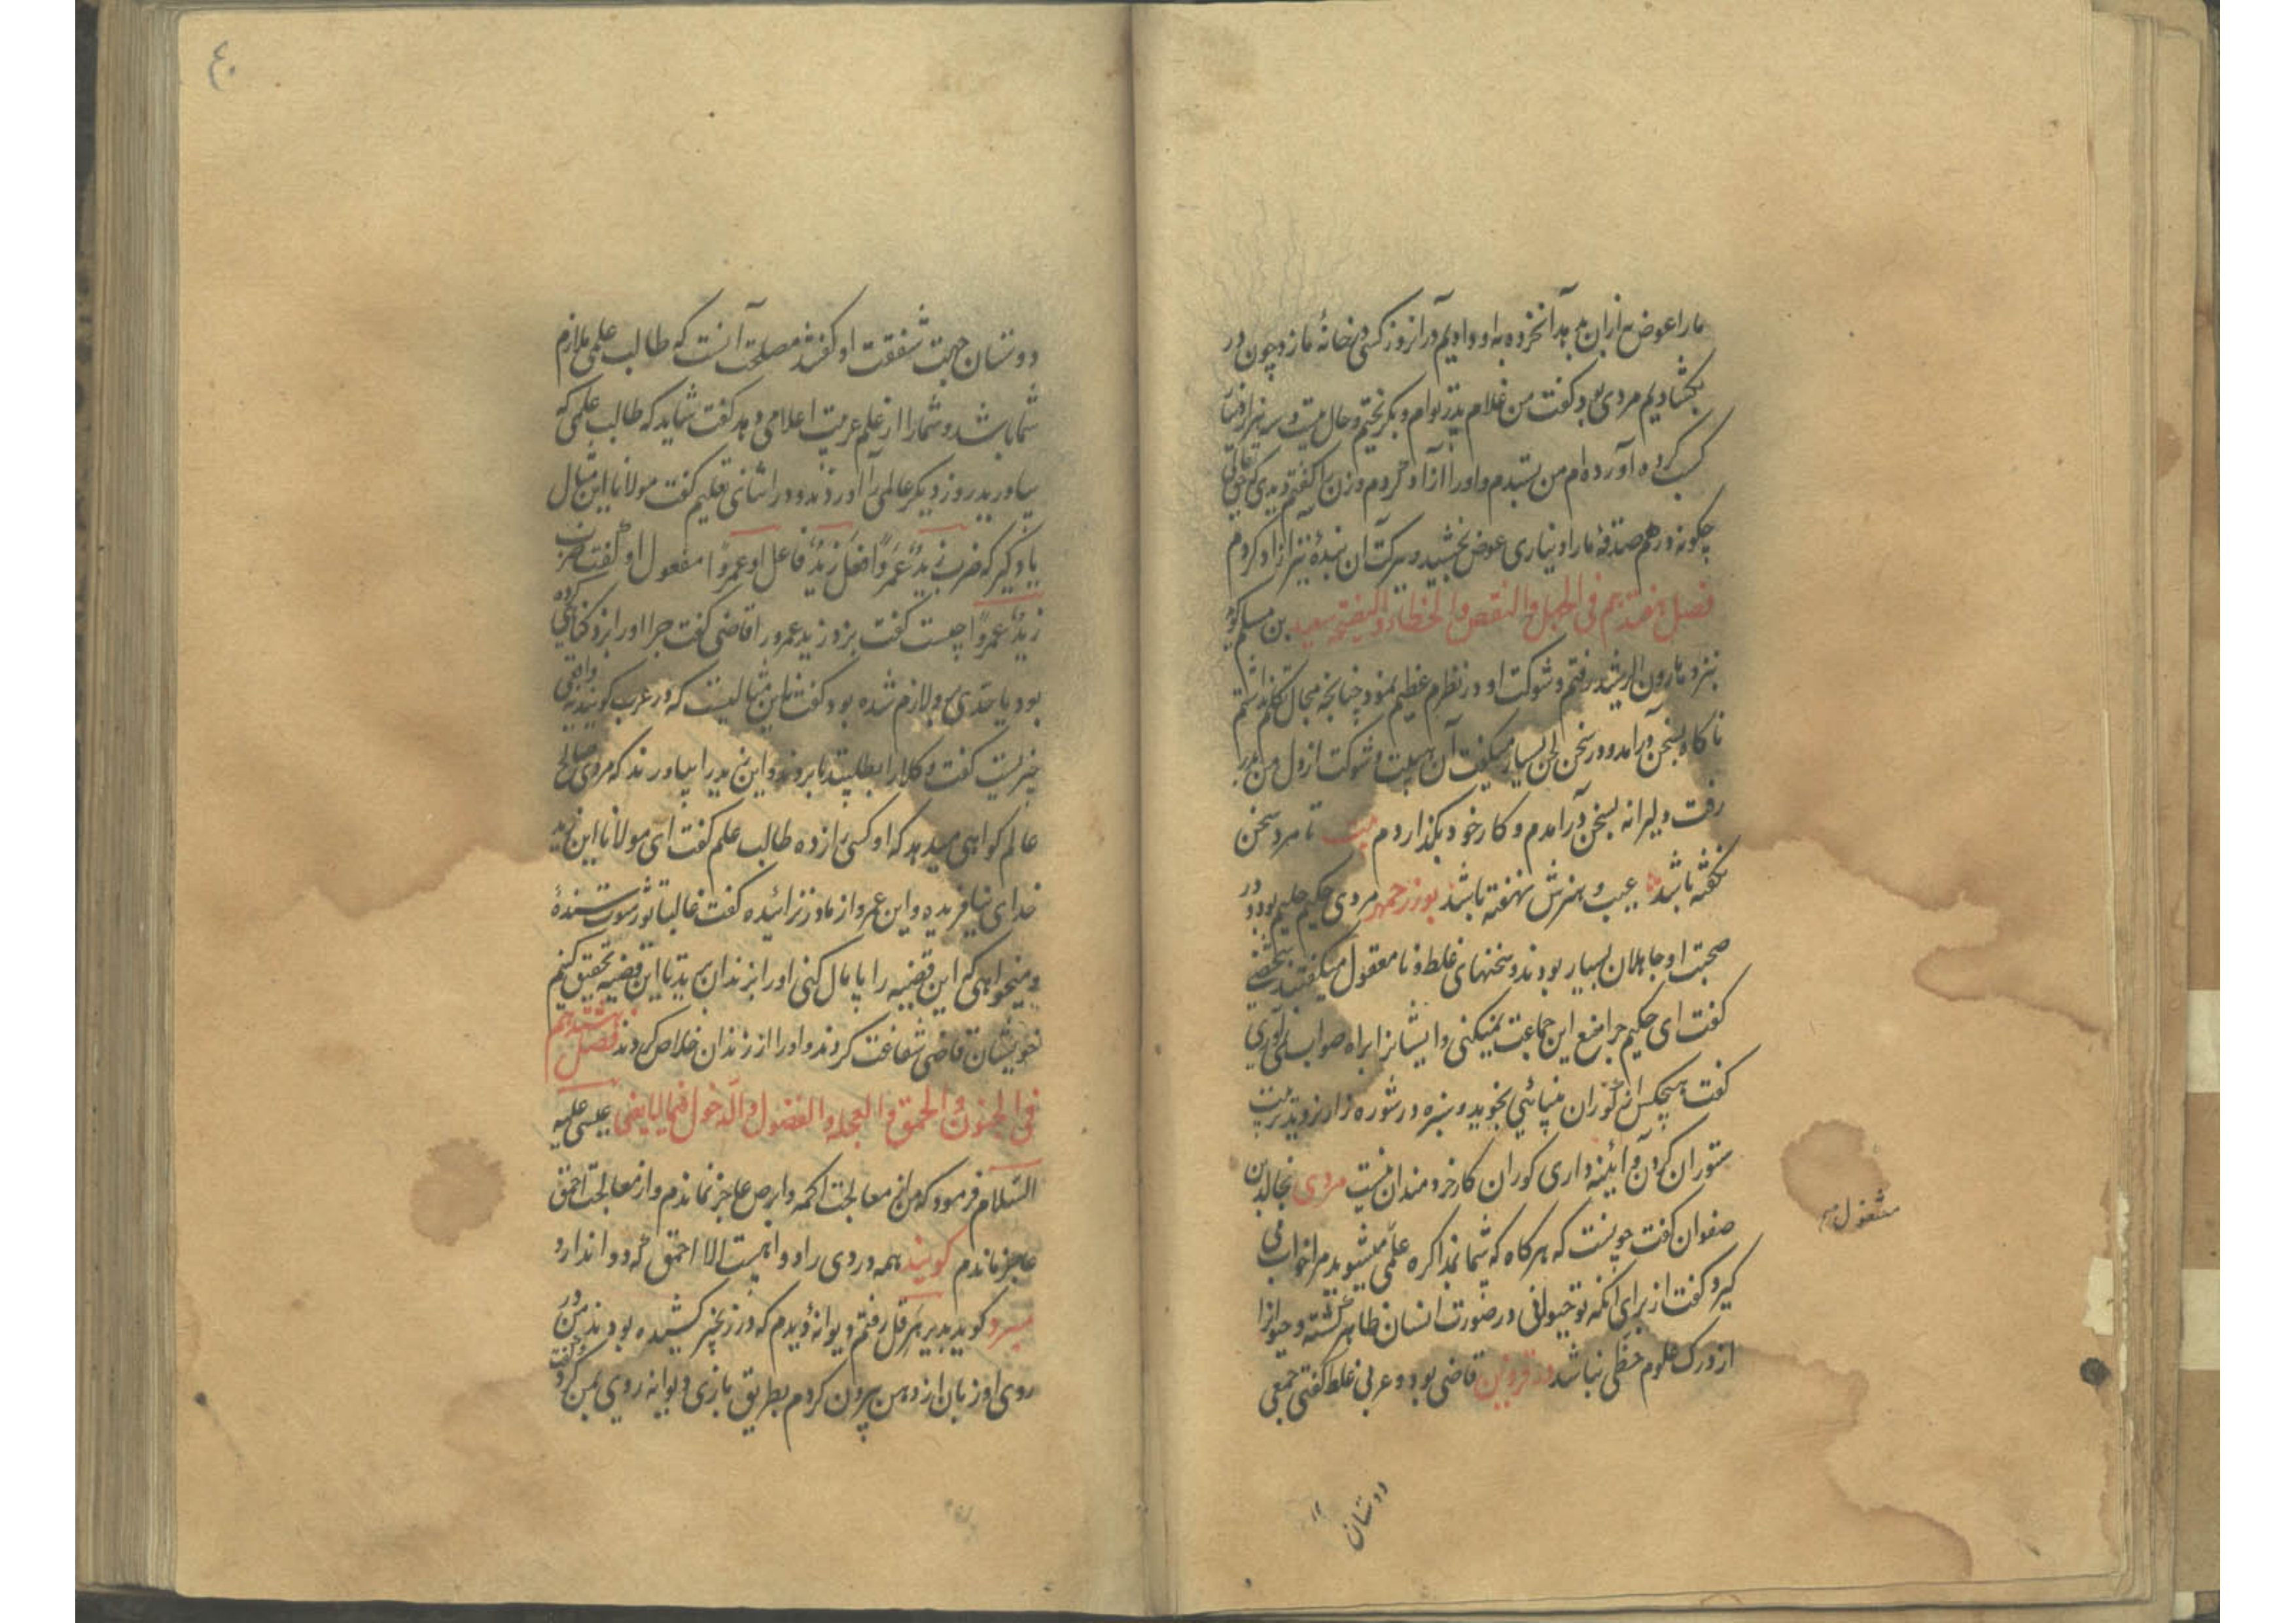 ما را عوض به از آن بدهد آنخرده به او دادیم در آنروز کسی در خانهٔ ما زد چون در
بکشادیم مردی بود گفت من غلام پدر توام و بگریختم و حال میت و سه هزار دینار
کسب کرده آورده‌ام من بستدم و اورا آزاد کردم و زن را گفتم دیدی که حق تعالی
چگونه درهم صدقهٔ ما را دیناری عوض بخشید و ببرکت آن بندهٔ نیز آزاد کردم
فصل هفتدهم فی الجهل و النقص و الخطاء و کیفیته سعید بن مسلم گوید
بنزد هارون الرشید رفتم و شوکت او در نظرم عظیم نمود چنانچه مجال تکلم نداشتم
ناگاه بسخن درآمد و در سخن لحن بسیار میگفت آن هیبت و شوکت از دل من بدر
رفت دلیرانه بسخن درآمدم و کار خود بگذاردم بیت تا مرد سخن
نگفته باشد عیب و هنرش نهفته باشد بوزرجمهر مردی حکیم حلیم بود و در
صحبت او جاهلان بسیار بودند و سخنهای غلط و نامعقول میگفتند شخصی
گفت ای حکیم چرا منع این جماعت نمیکنی و ایشانرا براه صواب نمی‌آوری
گفت هیچکس از کوران بینائی نجوید و سبزه در شوره زار نروید تربیت
ستوران کردن و آئینه داری کوران کار خردمندان نیست مردی بخالد بن
صفوان گفت چونست که هر گاه که شما بمذاکره علمی میشوید مرا خواب می
مشغول
گیرد گفت از برای آنکه تو حیوانی در صورت انسان ظاهر گشته و حیوانرا
از درک علوم حظی نباشد در قزوین قاضی بود و عربی غلط گفتی جمعی
دوستان
۴۰
دوستان جهت شفقت او گفتند مصلحت آنست که طالب علمی ملازم
شما باشد و شما را از علم عربیت اعلام می دهد گفت شاید که طالب علمی که
بیاورید روز دیگر عالمی را آوردند و در اثنای تعلیم گفت مولانا این مثال
یاد گیر که ضرب زیدٌ عمرواً فعل زیدٌ فاعل او عمرواً مفعول او گفت ضرب
زیدٌ عمرواً چیست گفت بزد زید عمرو را قاضی گفت چرا او را بزد گناهی کرده
بود یا حدی برو لازم شده بود گفت نه این مثالیست که در عرب گویند نه واقعی
چیزیست گفت وکلا را بطلبید تا بروند و این زید را بیاورند که مردی صالح
عالم گواهی میدهد که او کسی را زده طالب علم گفت ای مولانا این زید
خدای نیافریده و این عمرو از مادر نزائیده گفت غالبا تو رشوت ستندهٔ
و میخواهی که این قضیه را پایمال کنی او را بزندان برید تا این قضیه تحقیق کنیم
خویشان قاضی شفاعت کردند و او را از زندان خلاص کردند فصل هشتدهم
فی الجنون و الحمق و العجله و الفضول و الدخول فیما لا یعنی عیسی علیه
السلام فرمود که من از معالجت اکمه و ابرص عاجز نماندم و از معالجت احمق
عاجز ماندم گویند همه دردی را دوا هست الا احمق که دوا ندارد
مبرد گوید بدیر هرقل رفتم دیوانهٔ دیدم که در زنجیر کشیده بودند من در
روی او زبان از دهن بیرون کردم بطریق بازی دیوانه روی بمن کرد و گفت